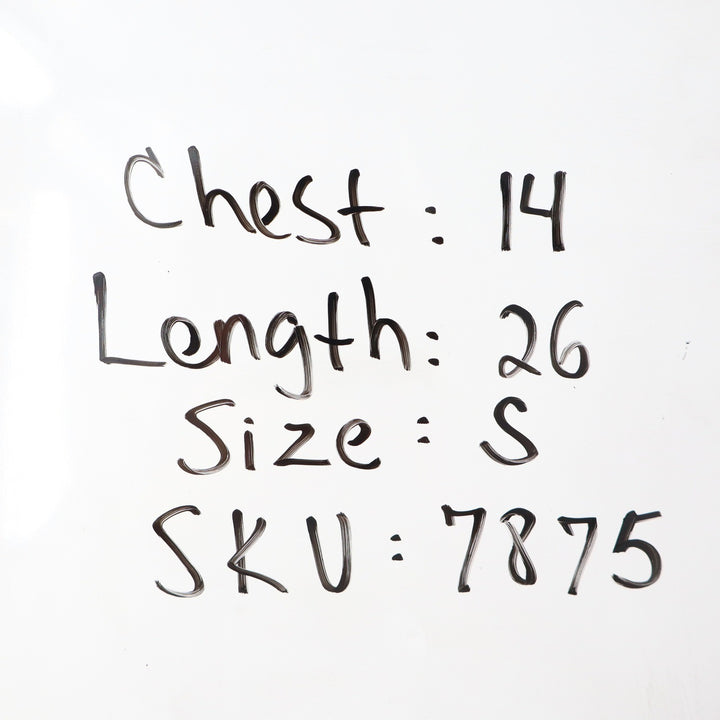 Chest: 14
Length: 26
Size: S
SKU: 7875